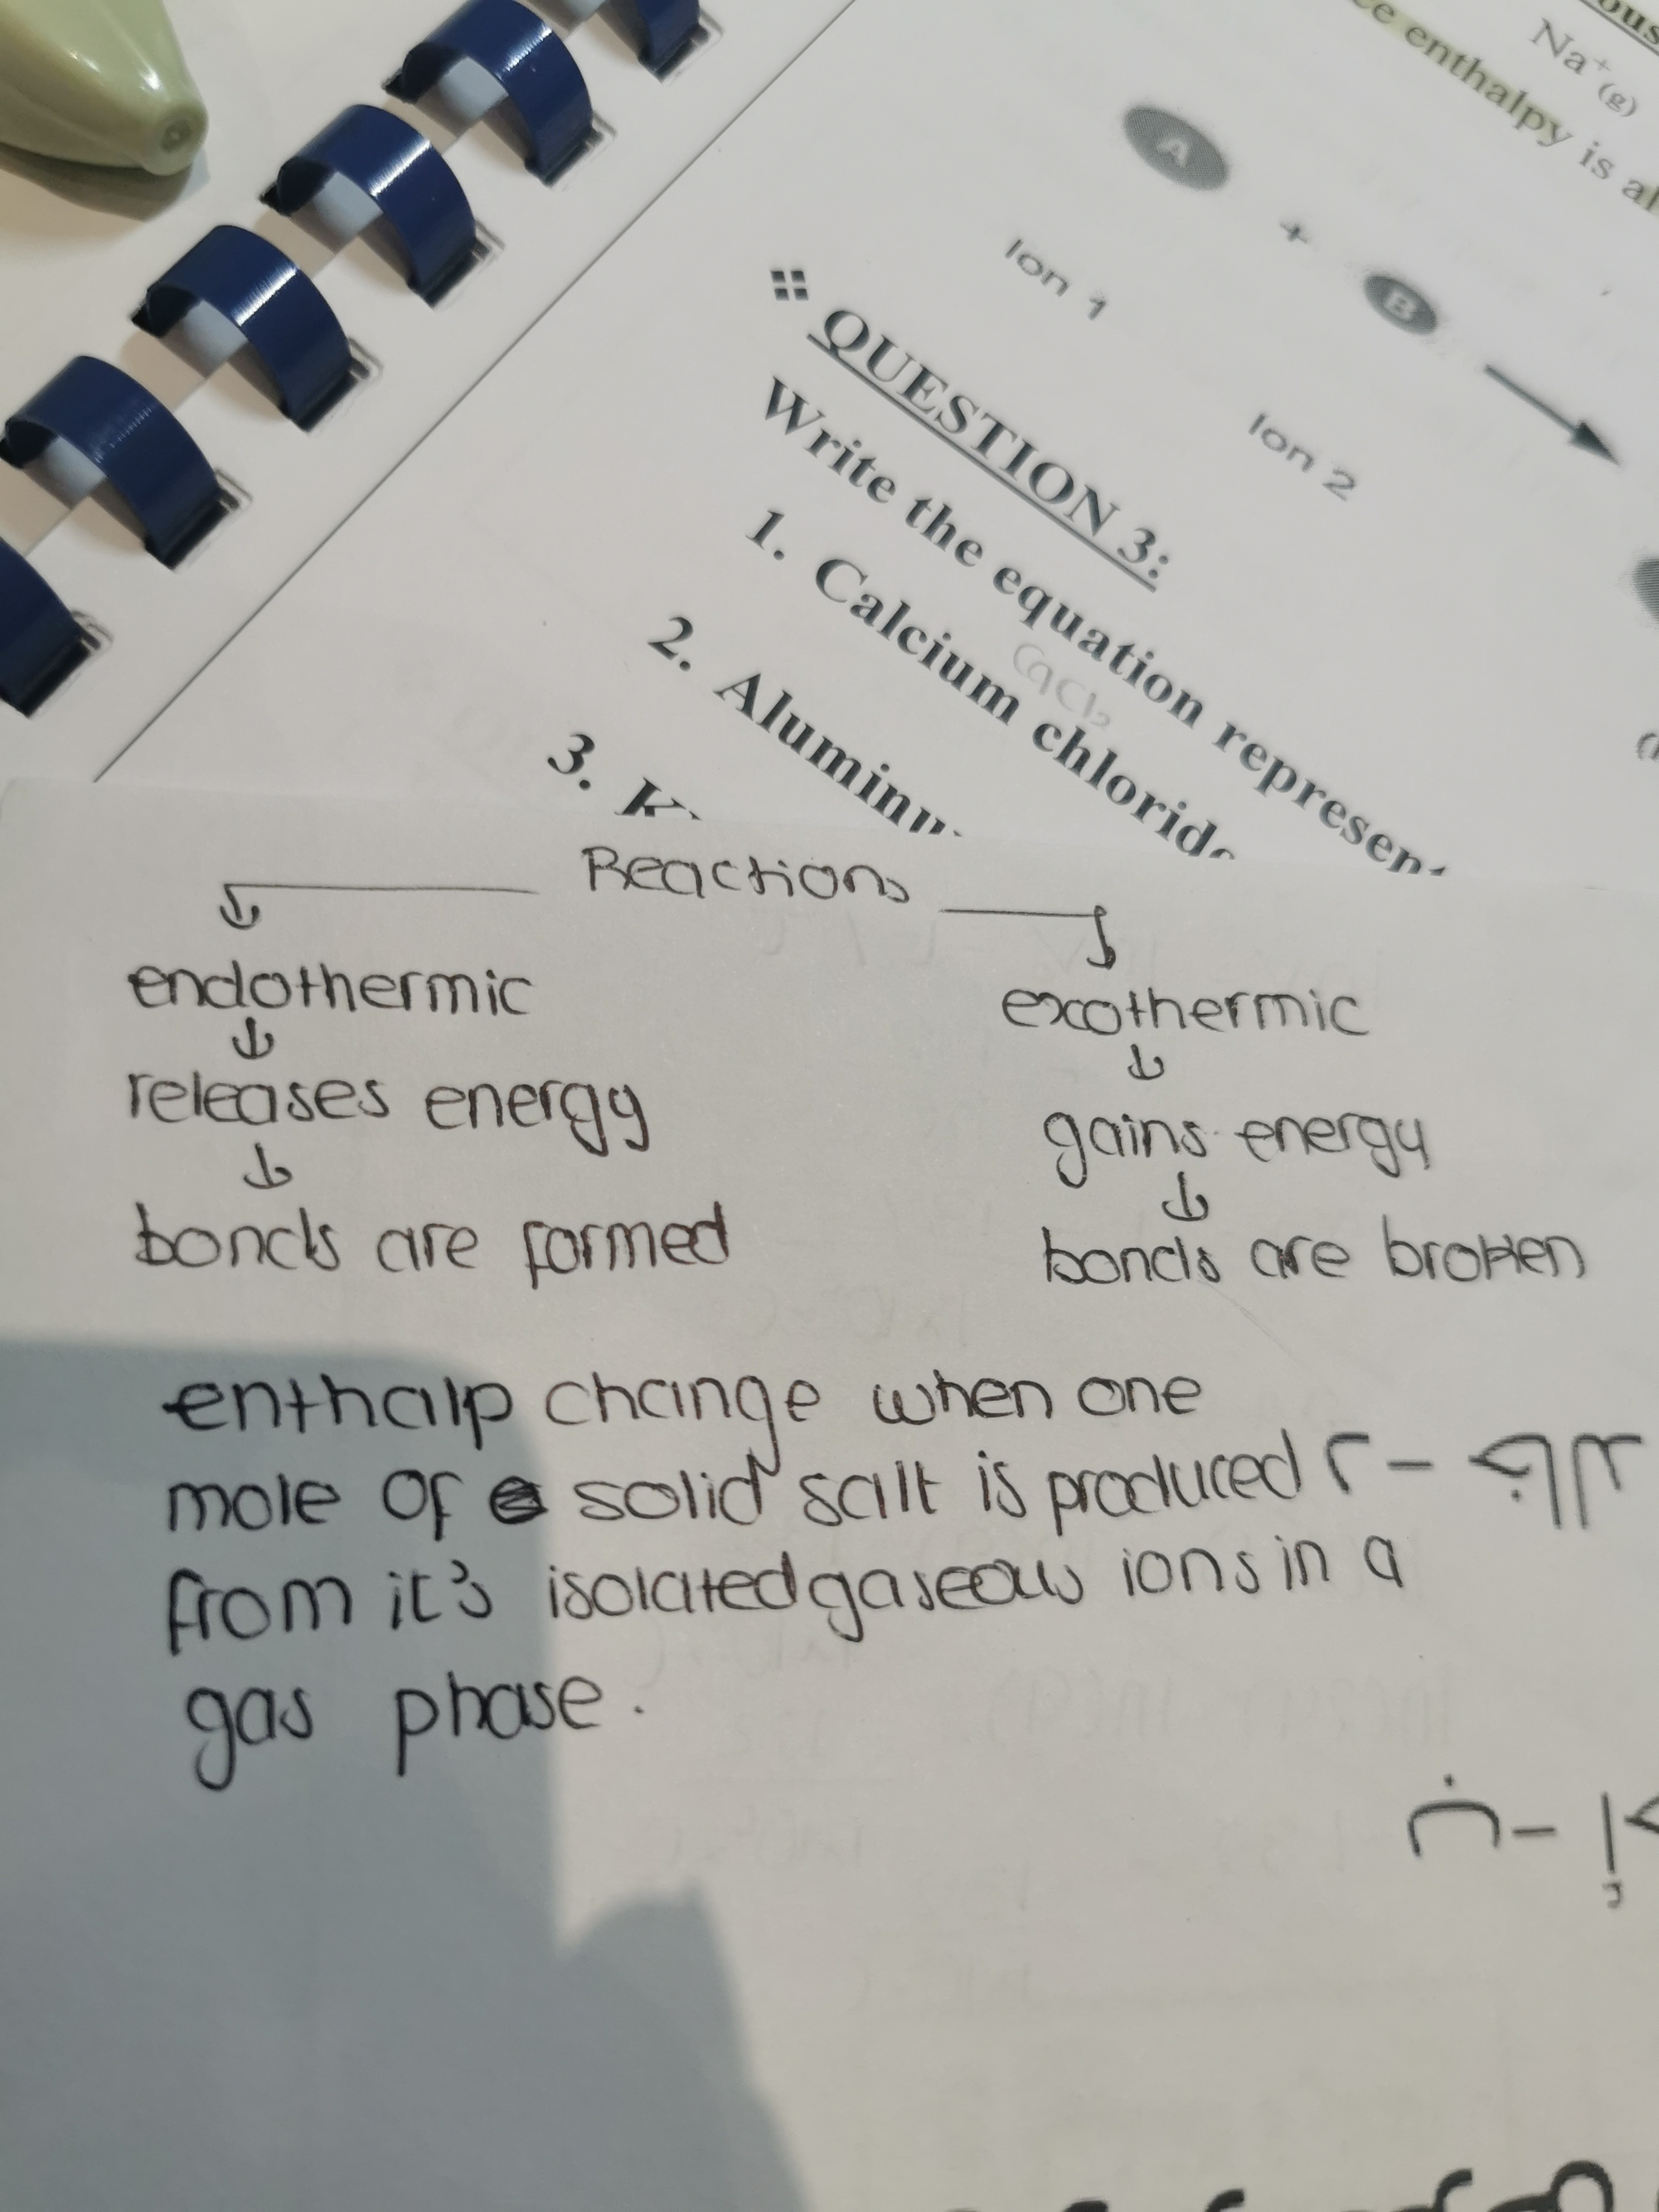 ous
Na⁺(g)
ce enthalpy is al
A + B
Ion 1 Ion 2
QUESTION 3:
Write the equation represent
1. Calcium chloride
CaCl₂
2. Aluminu
3. K
Reactions
endothermic exothermic
releases energy gains energy
bonds are formed bonds are broken
enthalp change when one
mole of solid salt is produced
from it's isolated gaseous ions in a
gas phase.